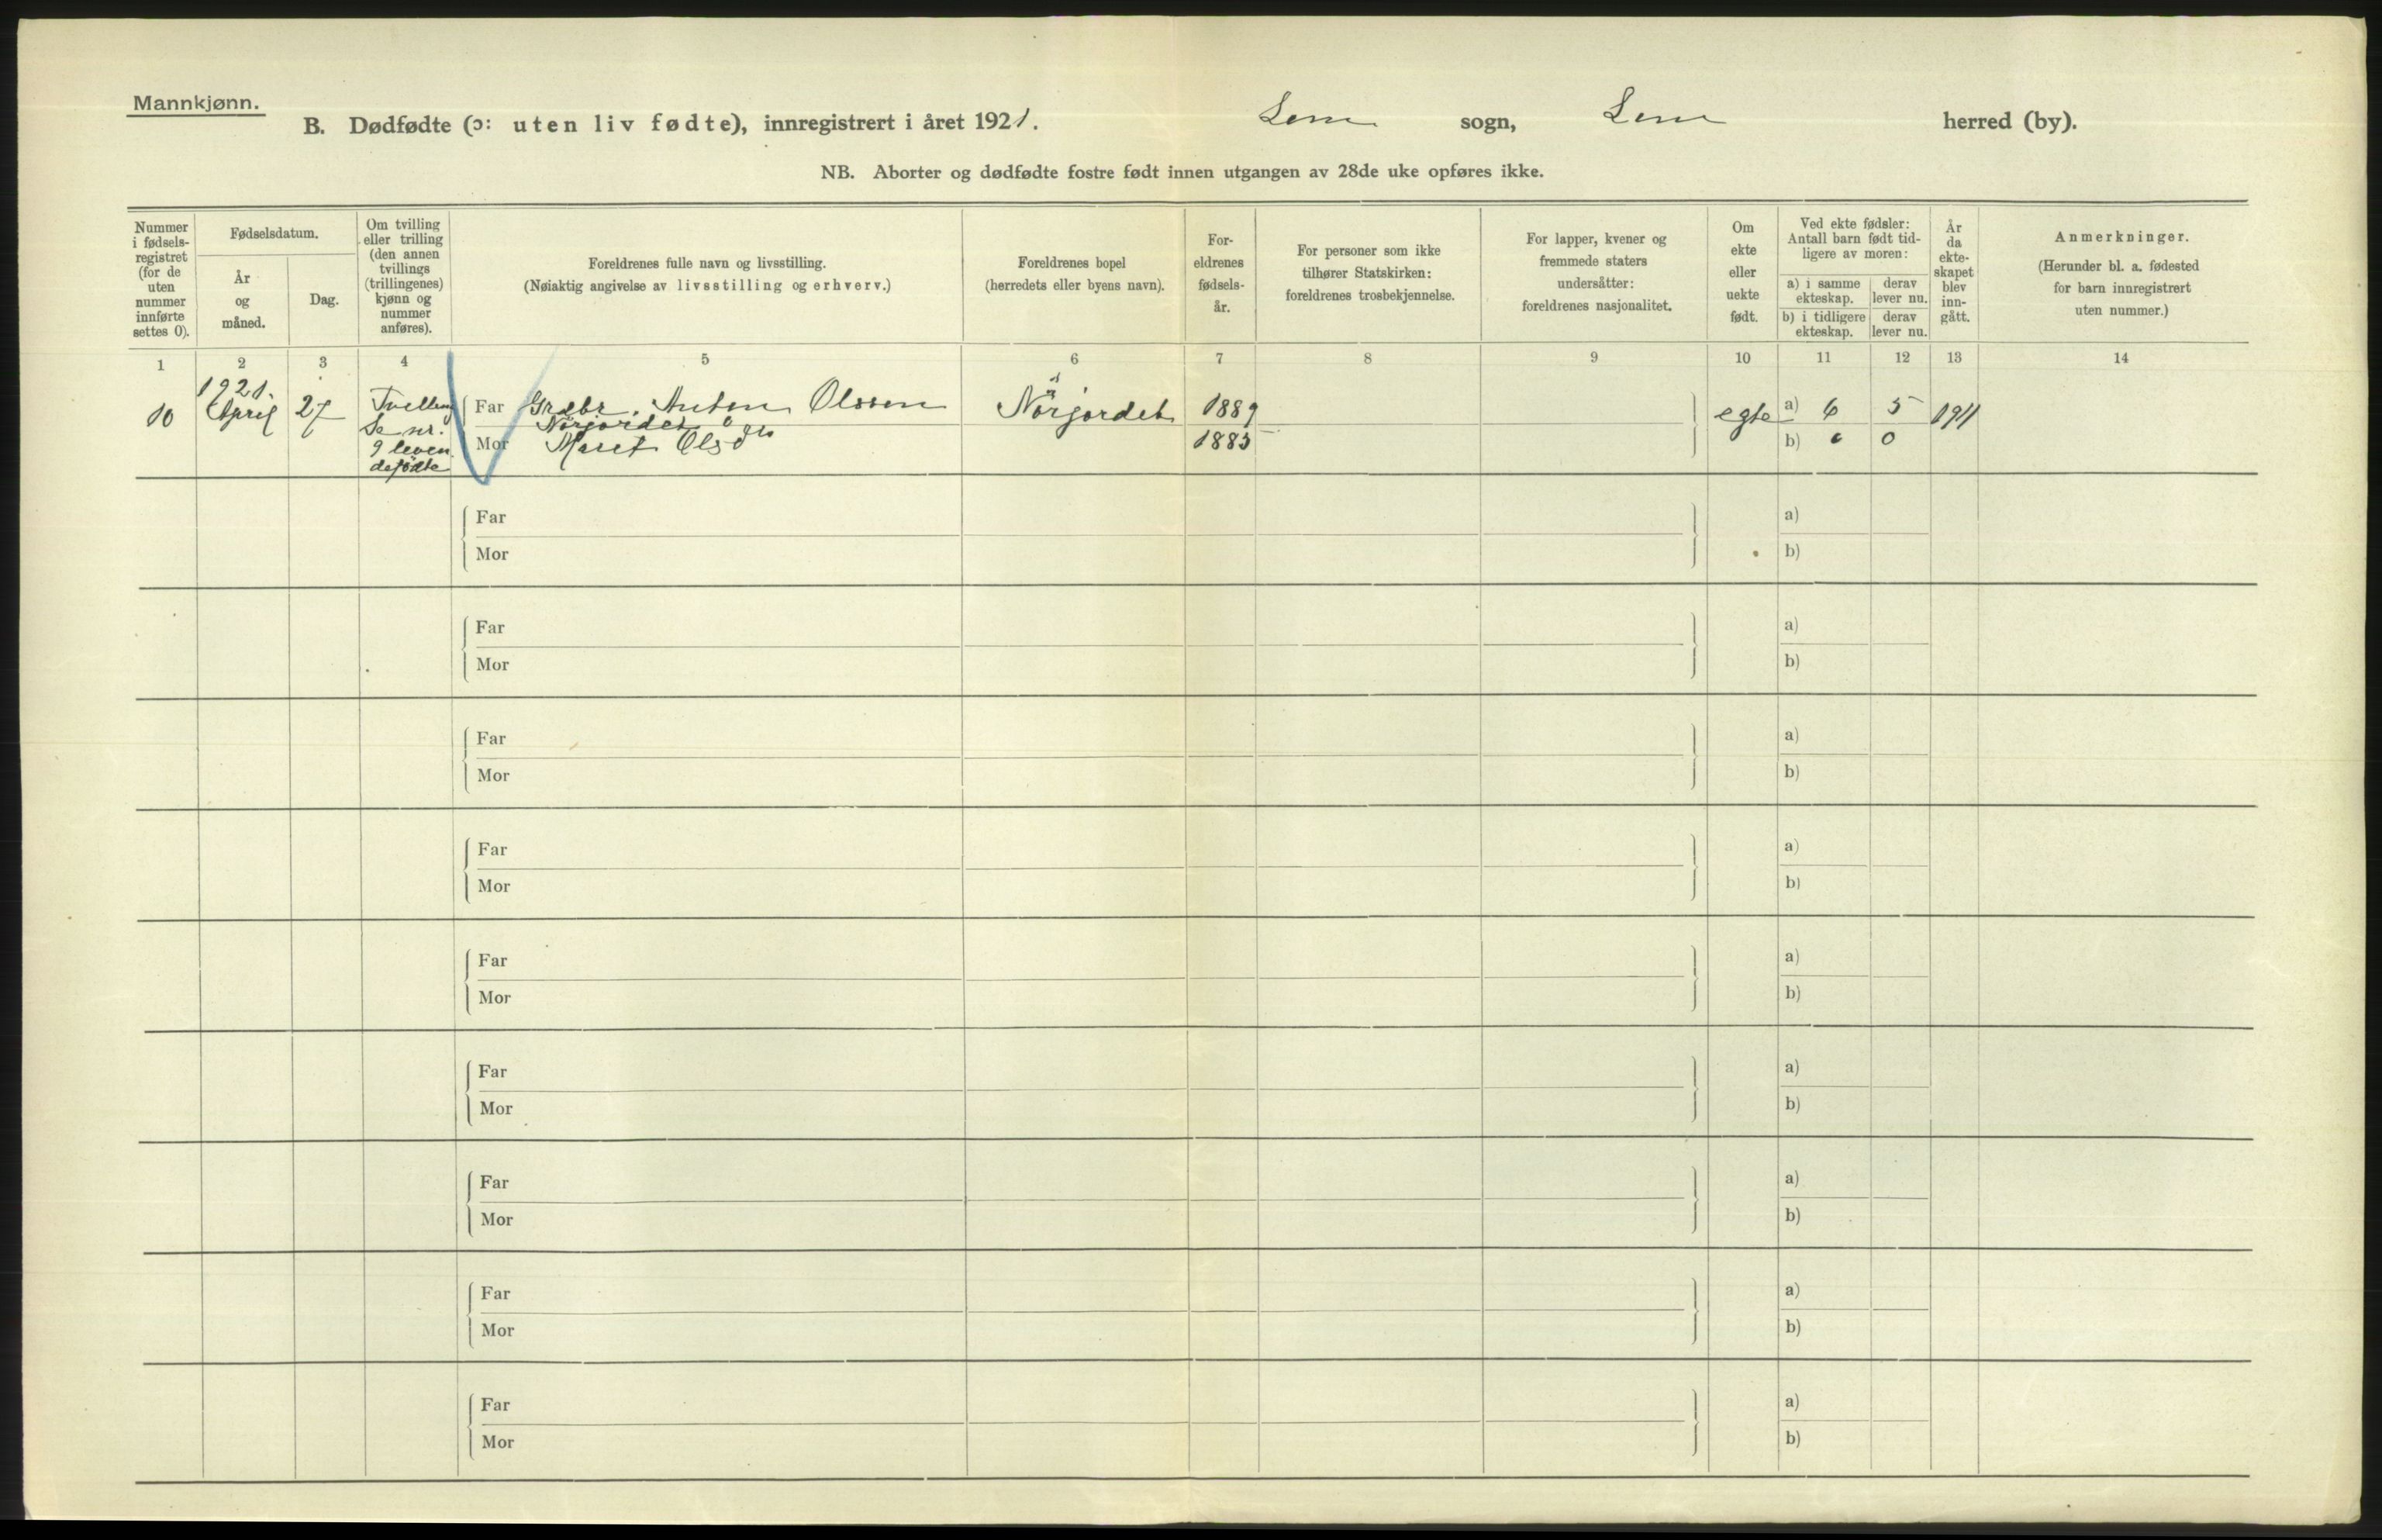 Mannkjønn.
B. Dødfødte (ɔ: uten liv fødte), innregistrert i året 1921.
sogn,
herred (by).
NB. Aborter og dødfødte fostre født innen utgangen av 28de uke opføres ikke.
Nummer i fødsels-registret (for de uten nummer innførte settes 0).
Fødselsdatum.
År og måned.
Dag.
Om tvilling eller trilling (den annen tvillings (trillingenes) kjønn og nummer anføres).
Foreldrenes fulle navn og livsstilling.
(Nøiaktig angivelse av livsstilling og erhverv.)
Foreldrenes bopel
(herredets eller byens navn).
For-eldrenes fødsels-år.
For personer som ikke tilhører Statskirken: foreldrenes trosbekjennelse.
For lapper, kvener og fremmede staters undersåtter: foreldrenes nasjonalitet.
Om ekte eller uekte født.
Ved ekte fødsler: Antall barn født tid-ligere av moren:
a) i samme ekteskap.
derav lever nu.
b) i tidligere ekteskap.
derav lever nu.
År da ekte-skapet blev inn-gått.
Anmerkninger.
(Herunder bl. a. fødested for barn innregistrert uten nummer.)
1 2 3 4 5 6 7 8 9 10 11 12 13 14
1921.
10 April 27 Tvelling
Se nr.
9 leven
defødte
Far Grdbr. Anton Olssen
Nørjordet
Mor Maret Olsdtr
Nørjordet
1889
1885
egte
a) 6 5
b) 0 0
1911
Far a)
Mor b)
Far a)
Mor b)
Far a)
Mor b)
Far a)
Mor b)
Far a)
Mor b)
Far a)
Mor b)
Far a)
Mor b)
Far a)
Mor b)
Far a)
Mor b)